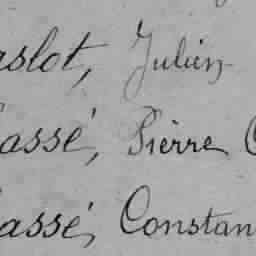 aslot, Julien
assé, Pierre
assé, Constan